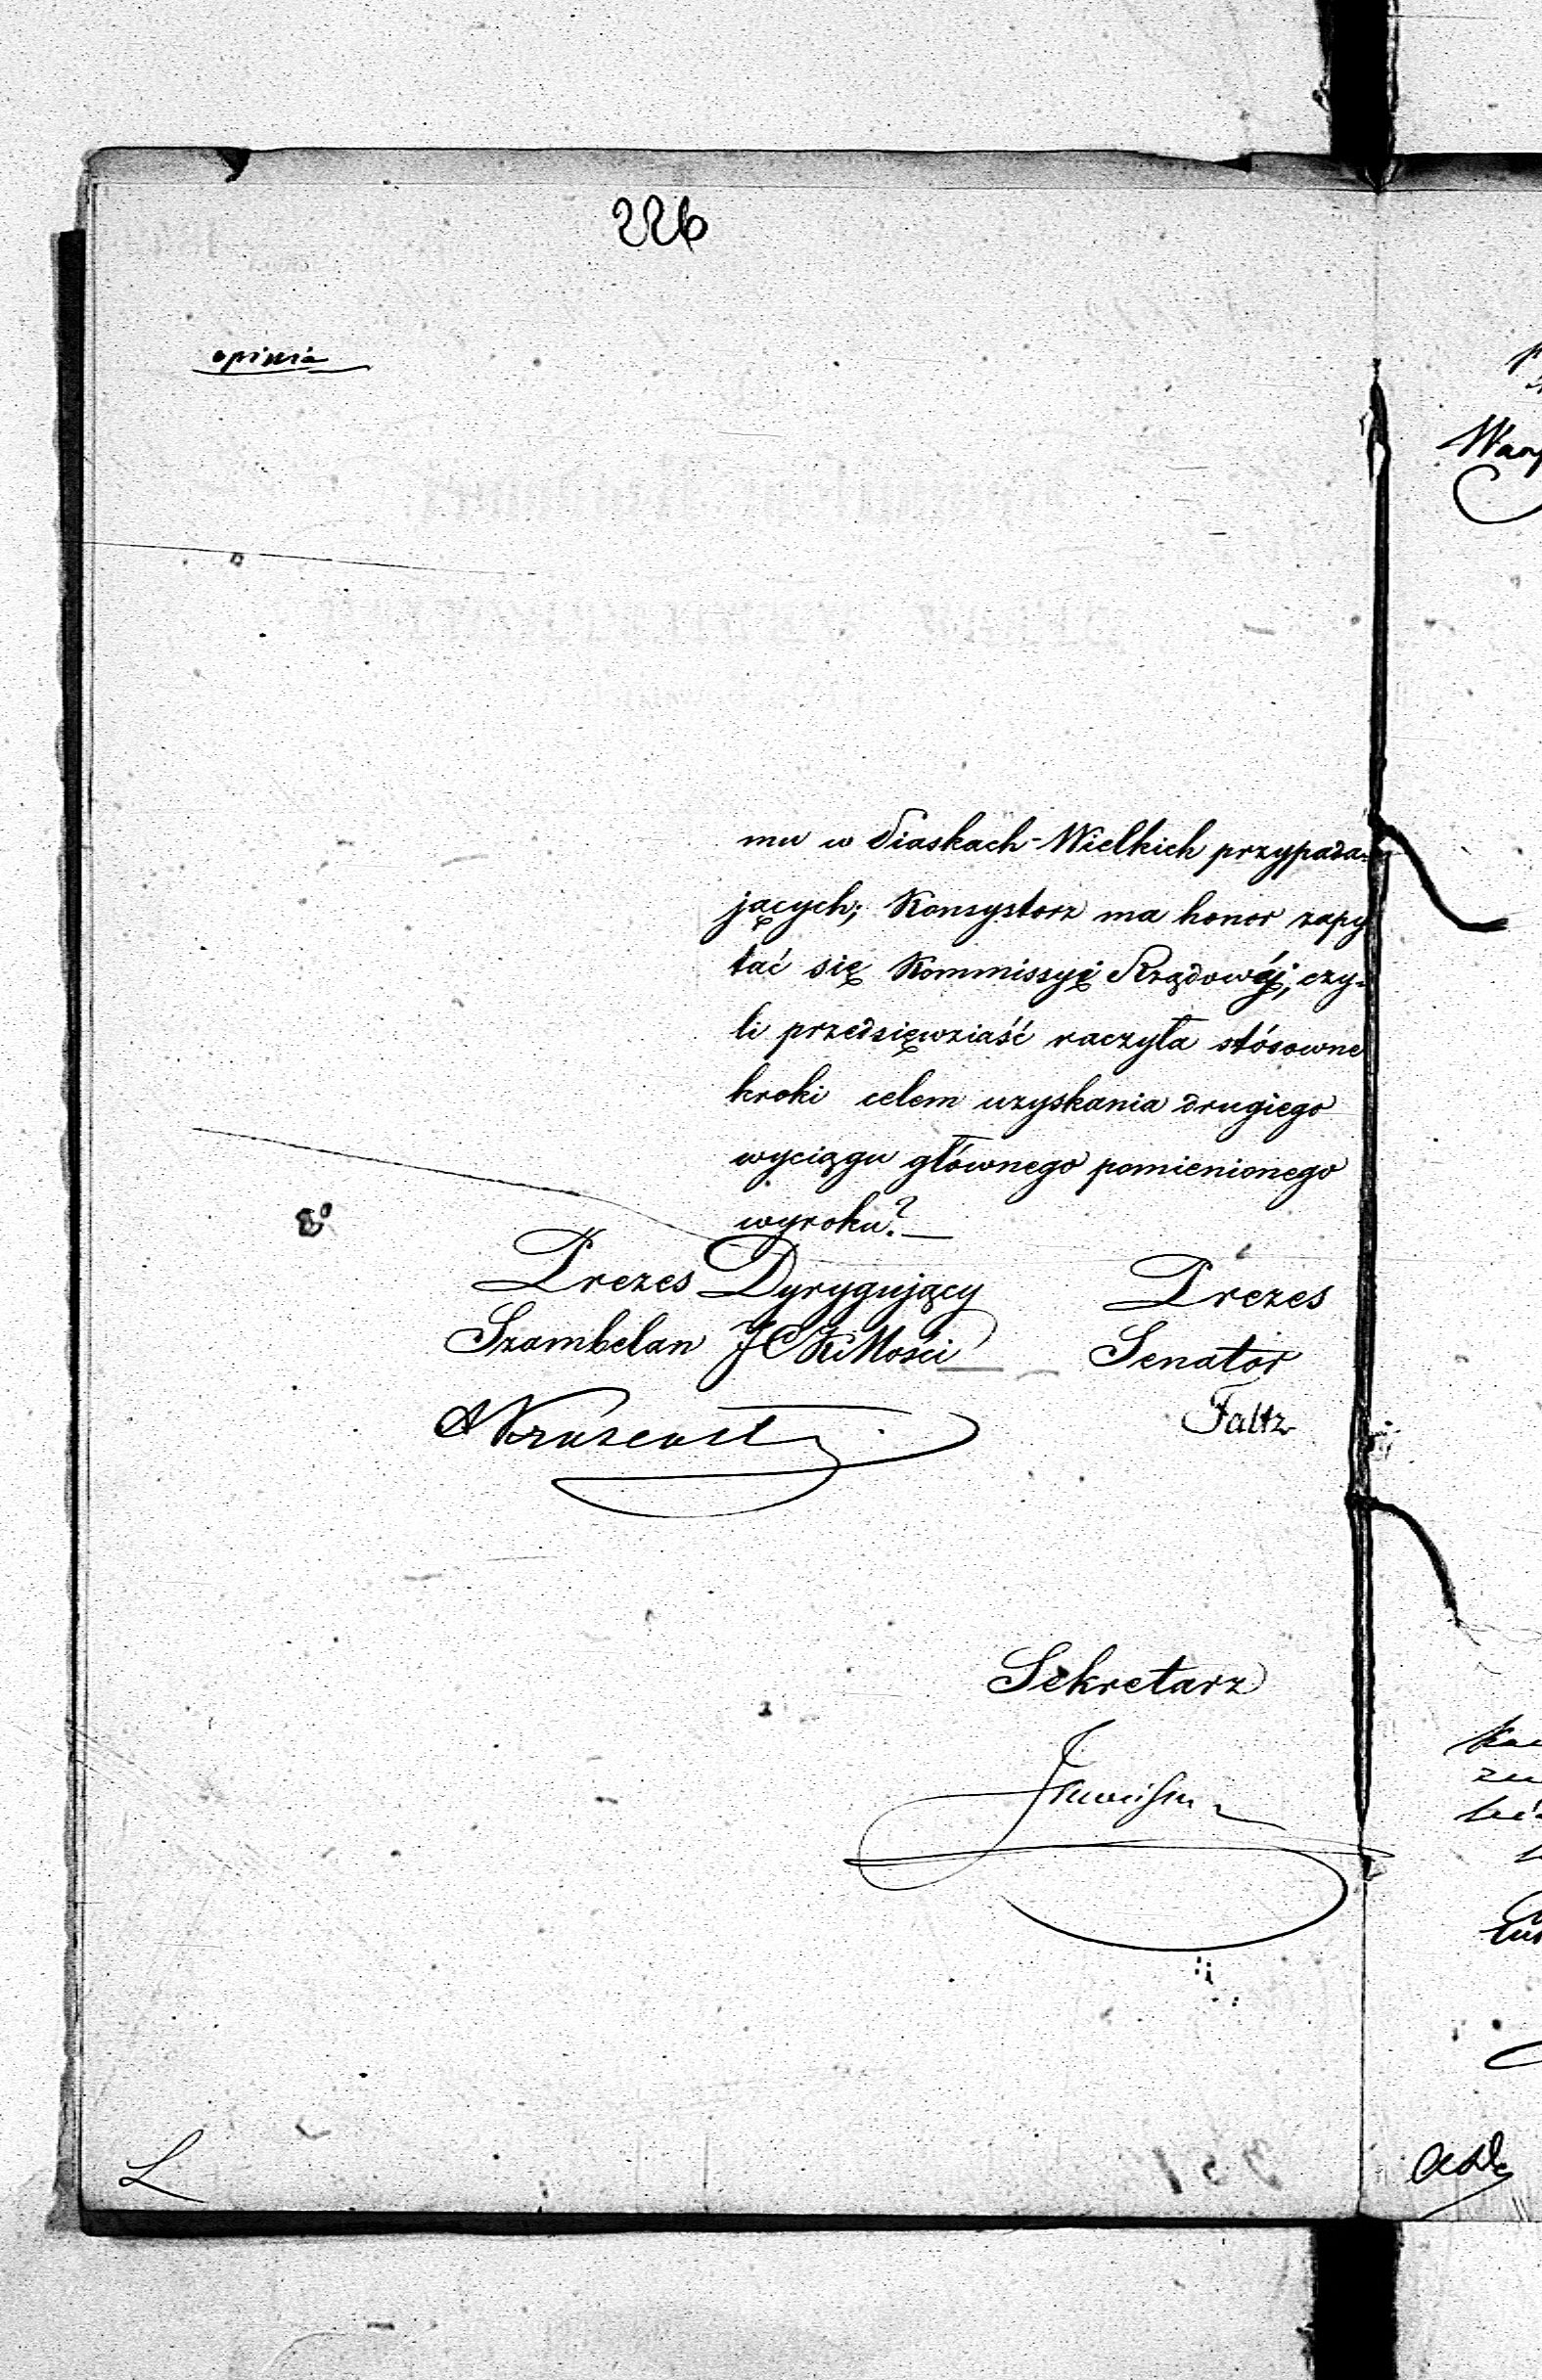 226
opinia
mu w Piaskach-Wielkich przypada-
jących; Konsystorz ma honor zapy
tać się Kommissyi Rządowéj, czy-
li przedsięwziaść raczyła stósowne
kroki celem uzyskania drugiego
wyciągu głównego pomienionego
wyroku?
Prezes Dyrygujący
Szambelan JCKMości
Prezes
Senator
Faltz
Sekretarz
L